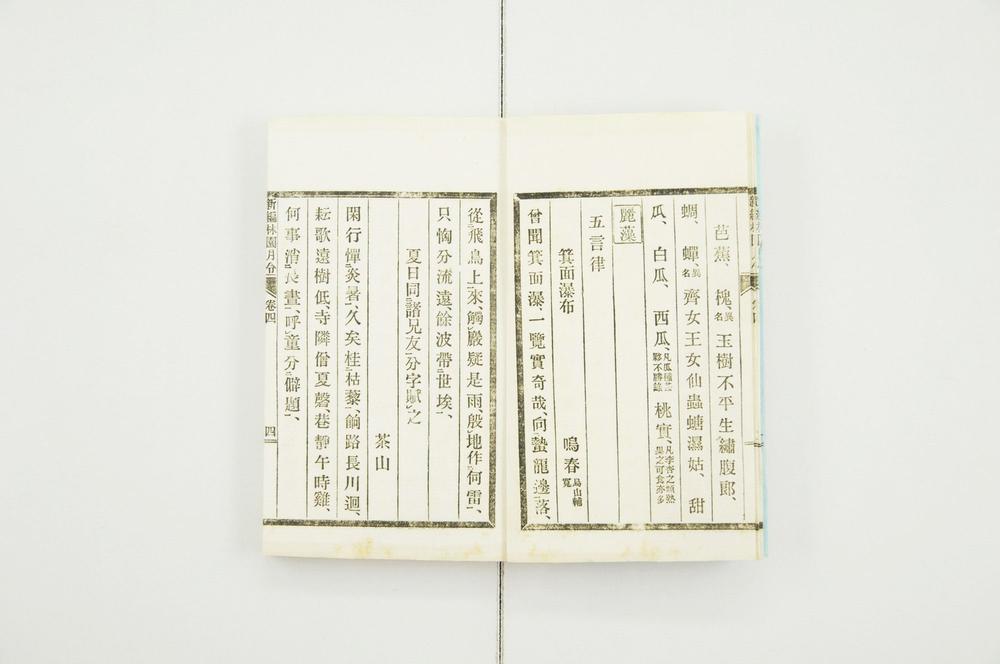 芭蕉、槐、異名玉樹不平生繡腹郎、
蜩、蟬、異名齊女王女仙蟲螗濕姑、甜
瓜、白瓜、西瓜、桃實、
麗藻
五言律
箕面瀑布　鳴春
曾聞箕面瀑、一覽實奇哉、向蟄龍邊落、
從飛鳥上來、觸巖疑是雨、殷地作何雷、
只恂分流遠、餘波帶世埃、
夏日同諸兄友分字賦之
茶山
閑行憚炎暑、久矣桂枯藜、餉路長川迴、
耘歌遠樹低、寺隣僧夏磬、巷靜午時雞、
何事消長晝、呼童分僻題、
新編林園月令　卷四　四